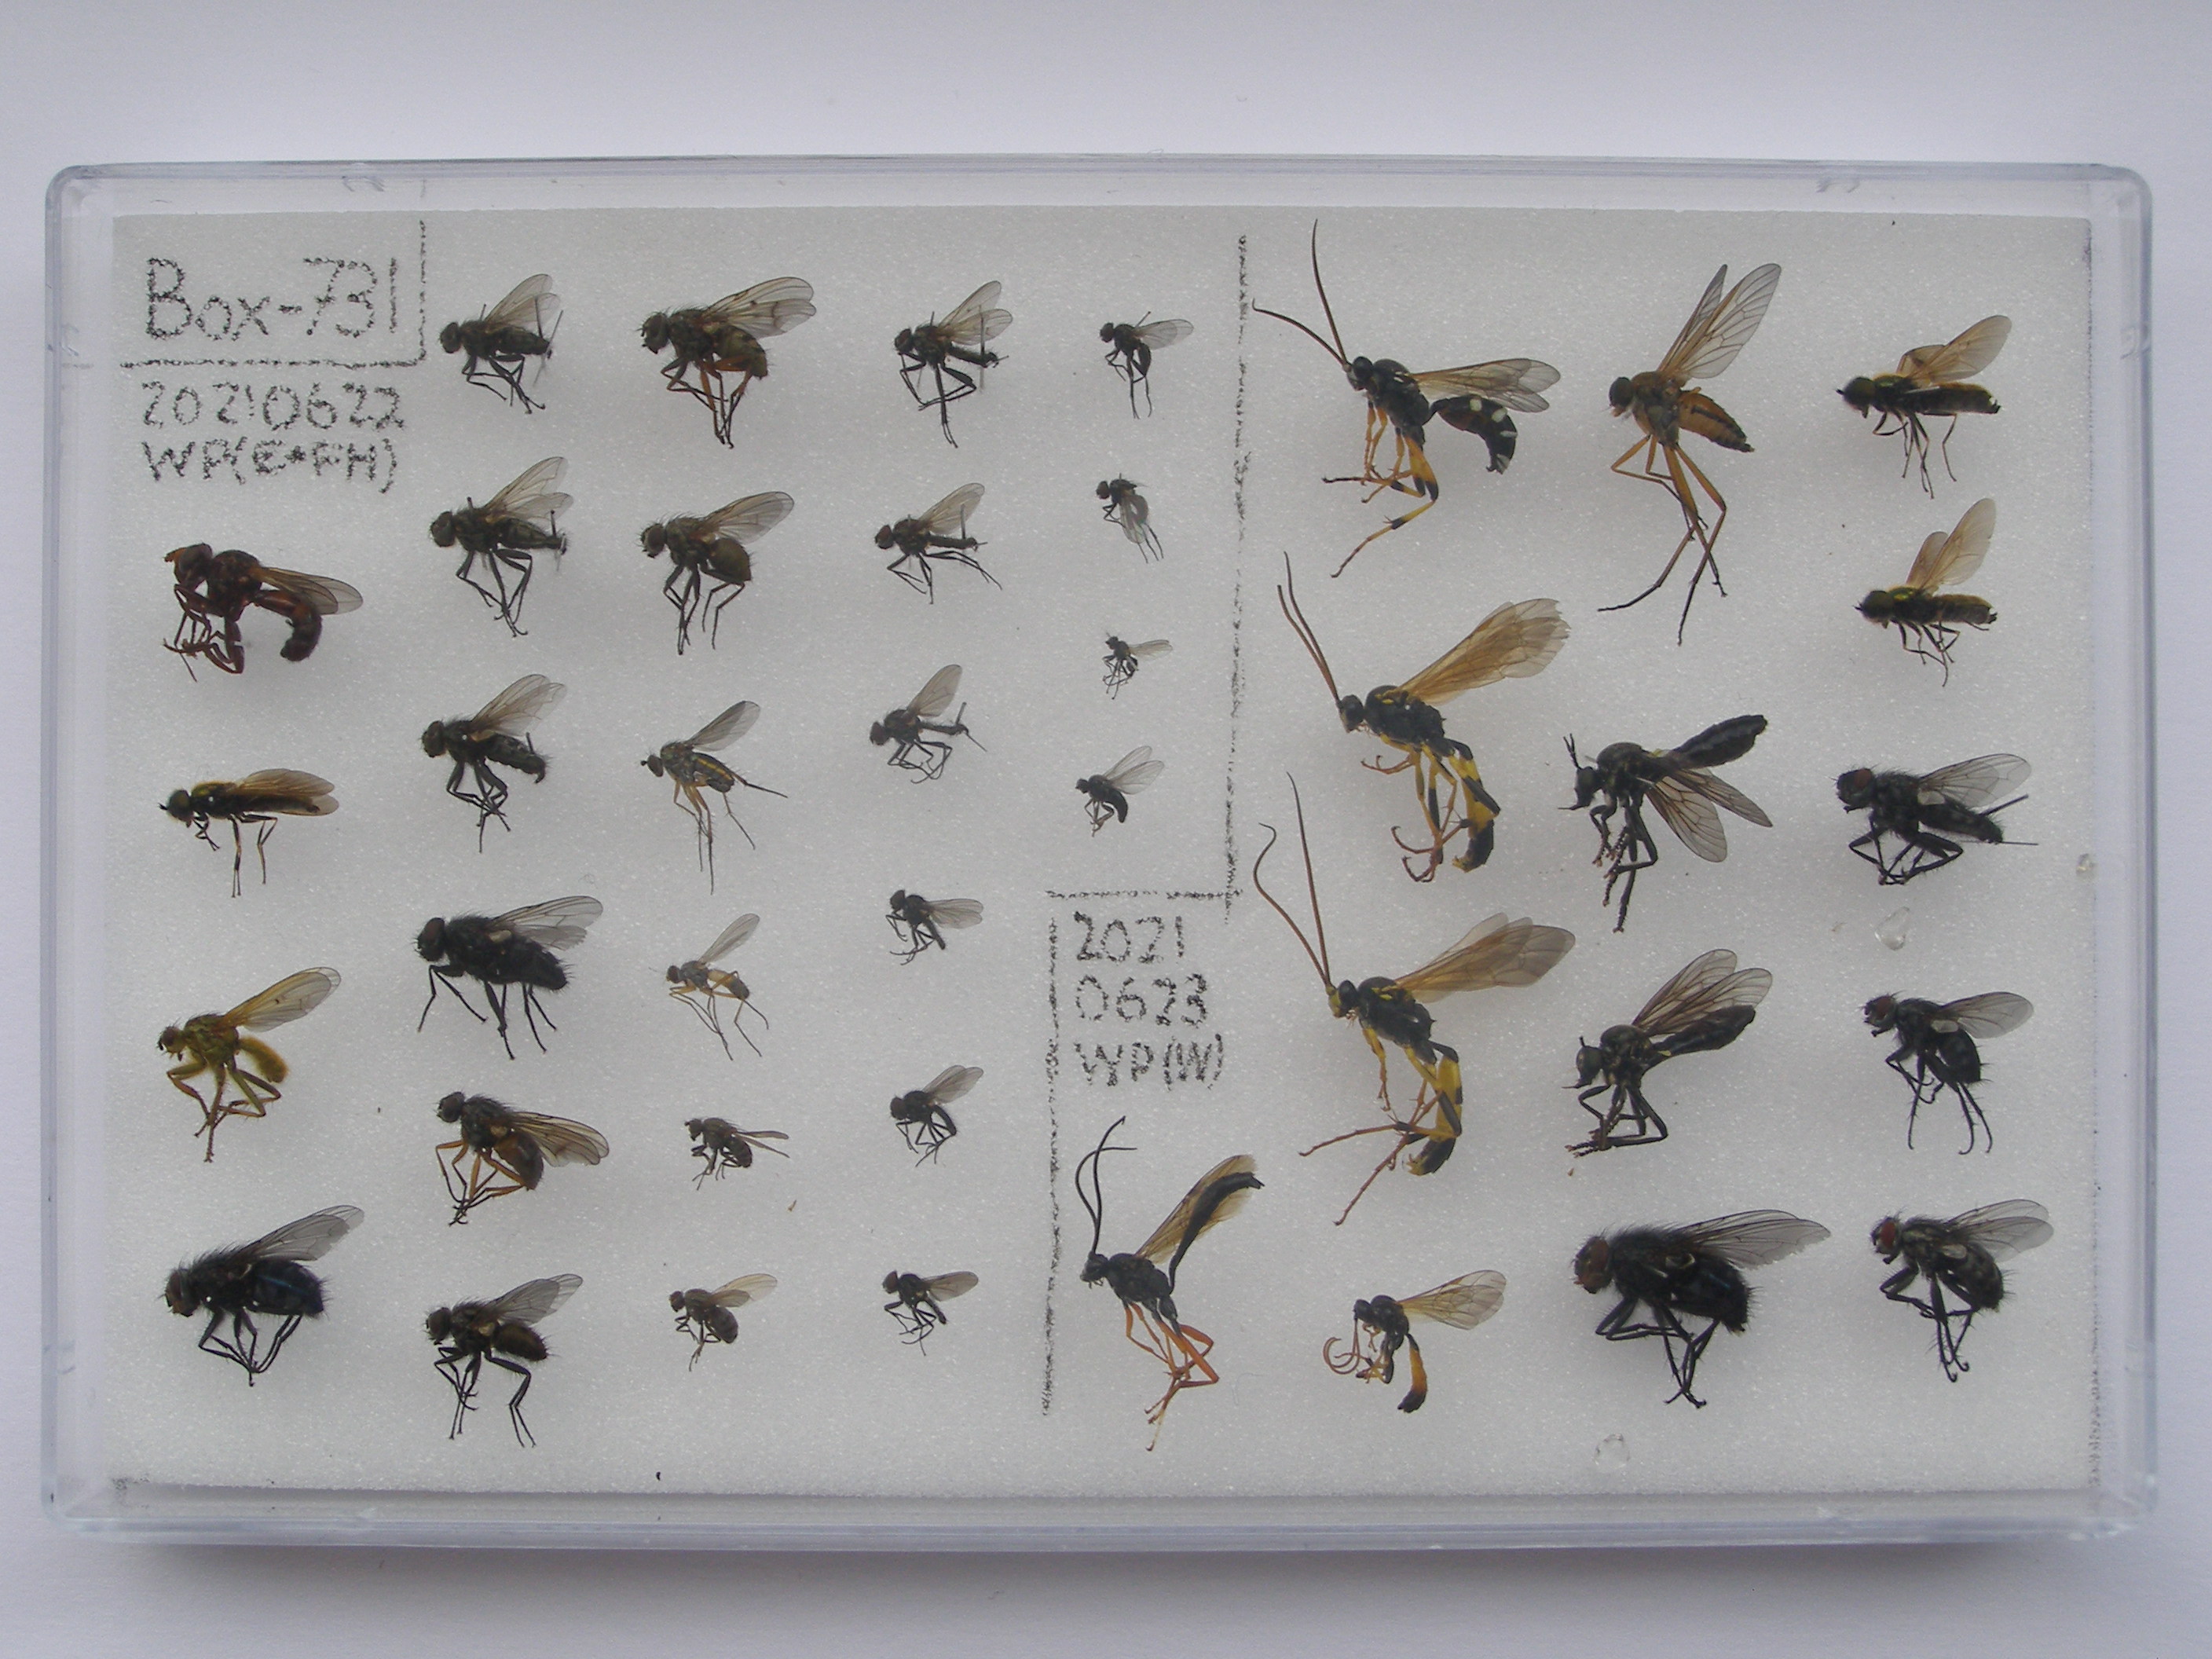 Box-731
20210622
WP(E+FH)
2021
0623
WP(W)